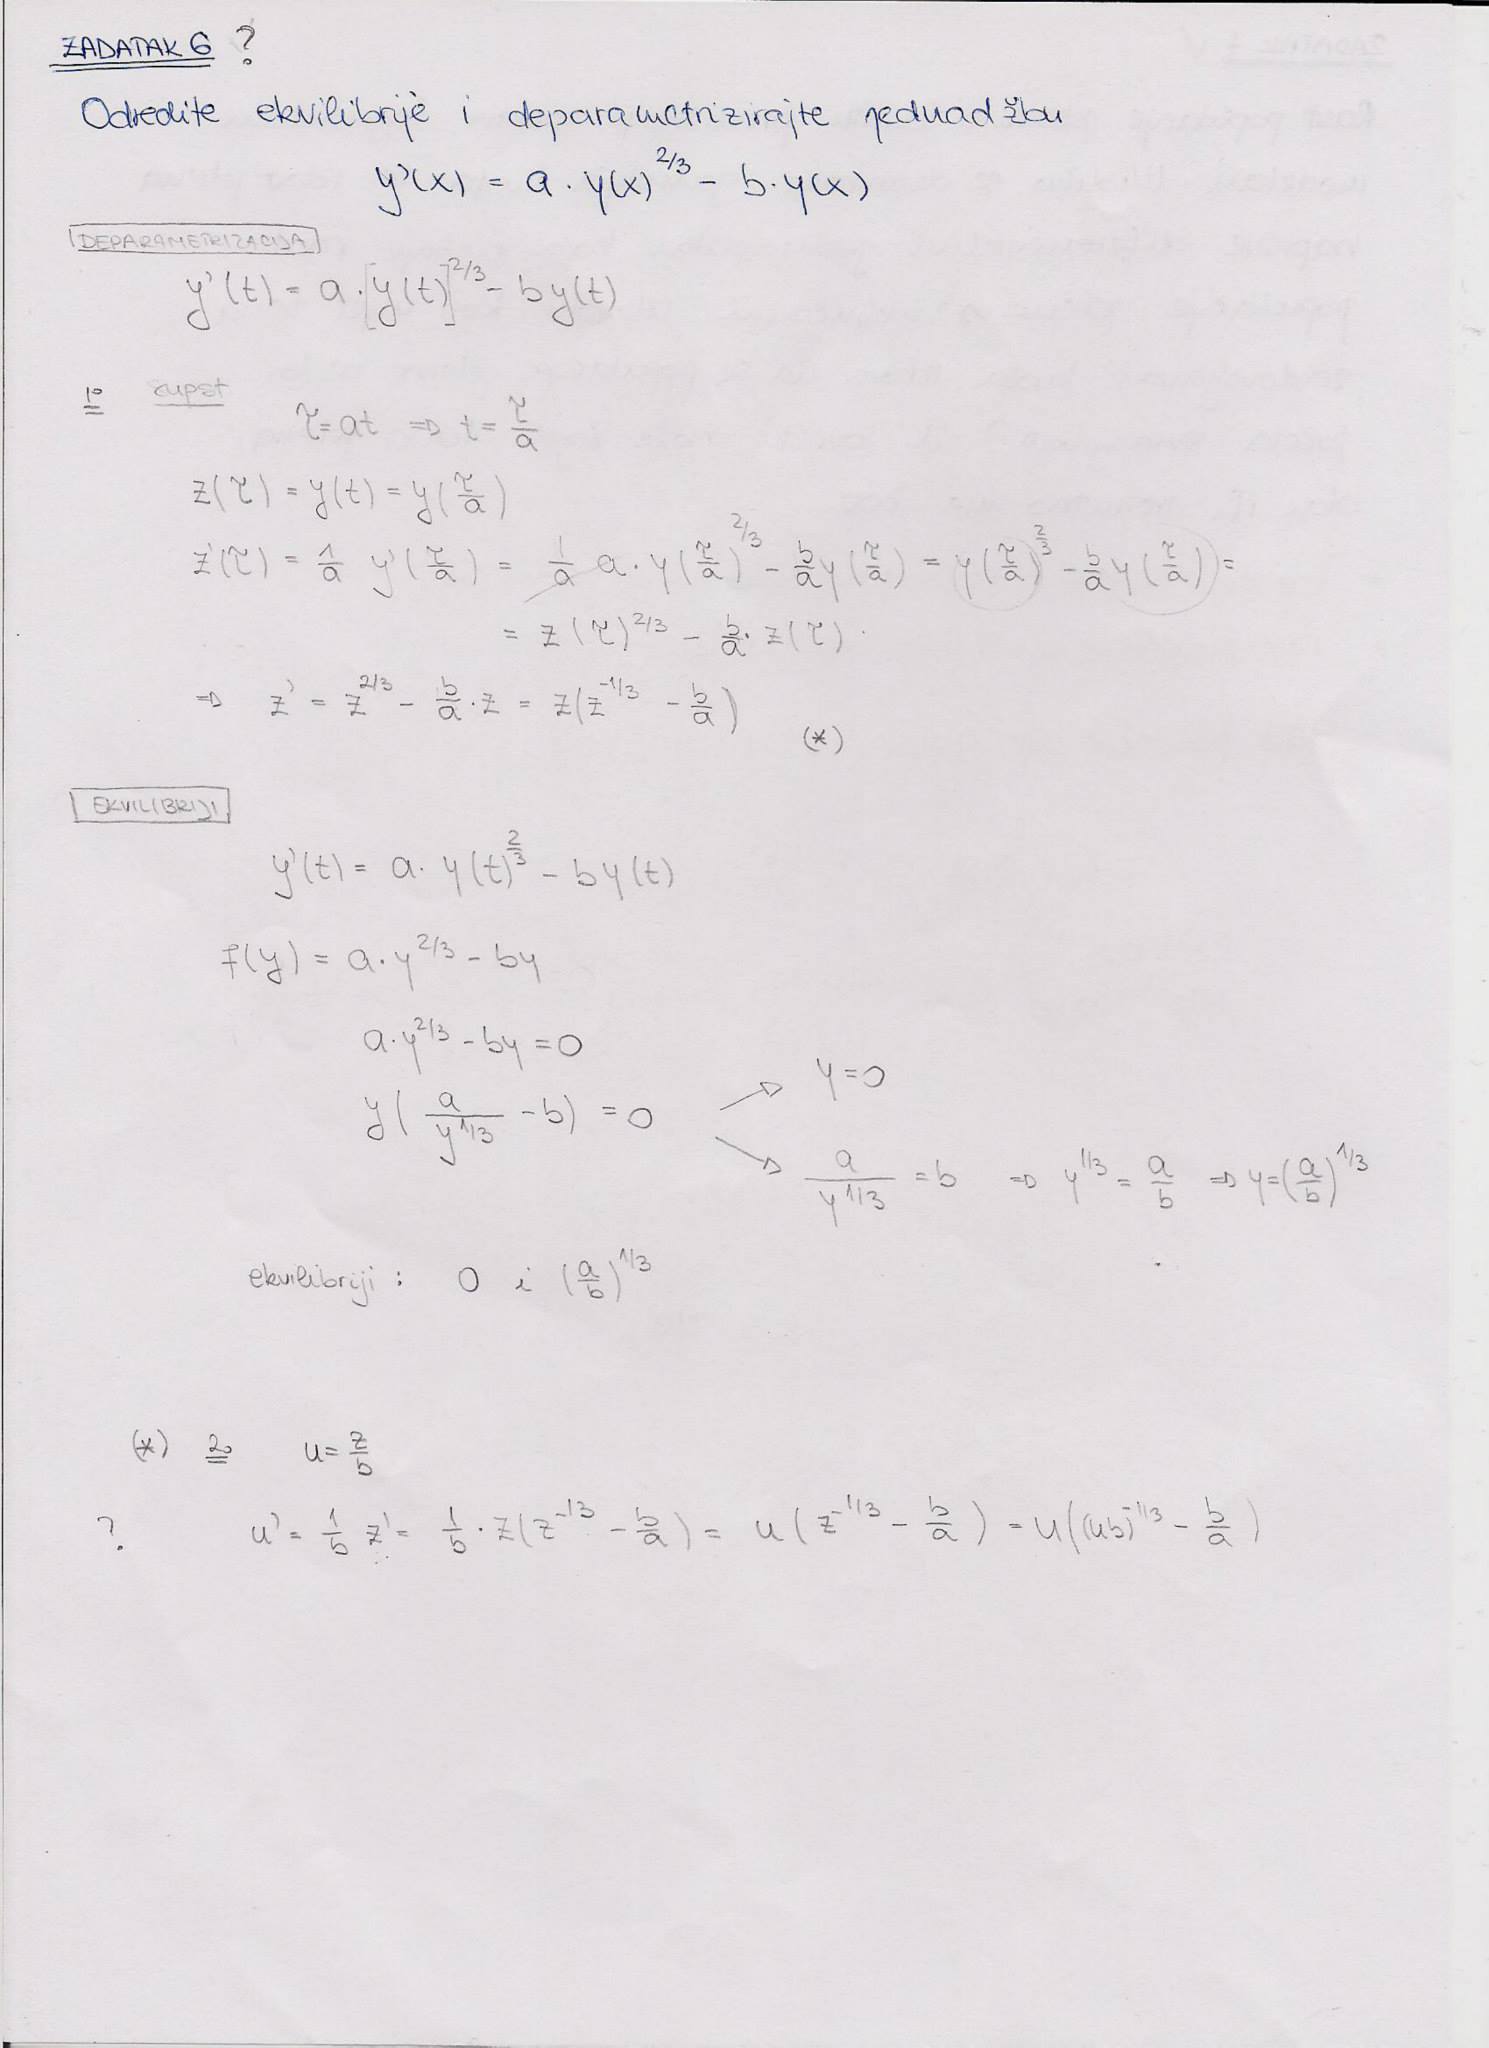 ZADATAK 6 ?
Odredite ekvilibrije i deparametrizirajte jednadžbu
y'(x) = a · y(x)^2/3 - b · y(x)
DEPARAMETRIZACIJA
y'(t) = a · [y(t)]^2/3 - b y(t)
1° supst
τ = at ⇒ t = τ/a
z(τ) = y(t) = y(τ/a)
z'(τ) = 1/a y'(τ/a) = 1/a a · y(τ/a)^2/3 - b/a y(τ/a) = y(τ/a)^2/3 - b/a y(τ/a) =
= z(τ)^2/3 - b/a · z(τ)
⇒ z' = z^2/3 - b/a · z = z(z^-1/3 - b/a)
(*)
EKVILIBRIJI
y'(t) = a · y(t)^2/3 - b y(t)
f(y) = a · y^2/3 - by
a · y^2/3 - by = 0
y = 0
y(a/y^1/3 - b) = 0
a/y^1/3 = b ⇒ y^1/3 = a/b ⇒ y = (a/b)^1/3
ekvilibriji : 0 i (a/b)^1/3
(*) 2° u = z/b
? u' = 1/b z' = 1/b · z(z^-1/3 - b/a) = u(z^-1/3 - b/a) = u((ub)^-1/3 - b/a)